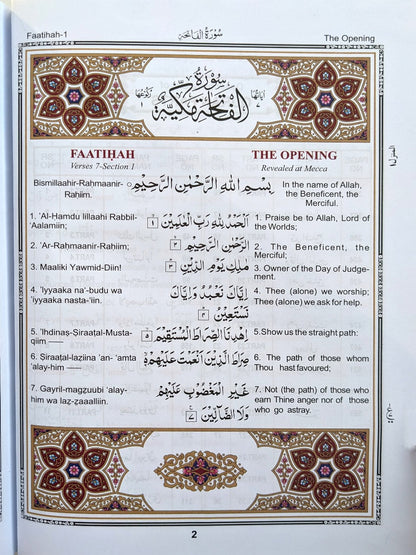 Faatihah-1 سُورَةُ الْفَاتِحَة The Opening
سُورَةُ الْفَاتِحَةِ مَكِّيَّةٌ
FAATIḤAH THE OPENING
Verses 7-Section 1 Revealed at Mecca
Bismillaahir-Raḥmaanir- بِسْمِ اللّٰهِ الرَّحْمٰنِ الرَّحِيْمِ In the name of Allah,
Raḥiim. the Beneficent, the
Merciful.
1. 'Al-Hamdu lillaahi Rabbil- اَلْحَمْدُ لِلّٰهِ رَبِّ الْعٰلَمِيْنَ ١ 1. Praise be to Allah, Lord of
'Aalamiin; the Worlds;
2. 'Ar-Raḥmaanir-Raḥiim; الرَّحْمٰنِ الرَّحِيْمِ ٢ 2. The Beneficent, the
Merciful;
3. Maaliki Yawmid-Diin! مٰلِكِ يَوْمِ الدِّيْنِ ٣ 3. Owner of the Day of Judge-
ment.
4. 'Iyyaaka na'-budu wa اِيَّاكَ نَعْبُدُ وَاِيَّاكَ 4. Thee (alone) we worship;
'iyyaaka nasta-'iin. نَسْتَعِيْنُ Thee (alone) we ask for help.
5. 'Ihdinaṣ-Ṣiraaṭal-Musta- اِهْدِنَا الصِّرَاطَ الْمُسْتَقِيْمَ ٥ 5.Show us the straight path:
qiim ——
6. Ṣiraaṭal-laẕiina 'an- 'amta صِرَاطَ الَّذِيْنَ اَنْعَمْتَ عَلَيْهِمْ 6. The path of those whom
'alay-him —— Thou hast favoured;
7. Gayril-magẓuubi 'alay- غَيْرِ الْمَغْضُوْبِ عَلَيْهِمْ 7. Not (the path) of those who
him wa laẓ-ẓaaalliin. وَلَا الضَّآلِّيْنَ ٧ earn Thine anger nor of those
who go astray.
2